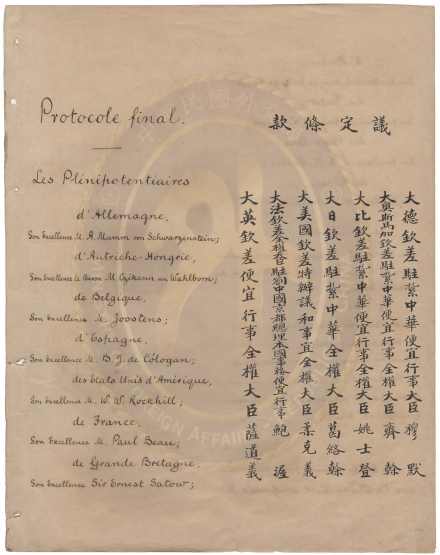 Protocole final.
Les Plénipotentiaires
d'Allemagne,
Son Excellence M. A. Mumm von Schwarzenstein;
d'Autriche-Hongrie,
Son Excellence M. le Baron M. Czikann von Wahlborn;
de Belgique,
Son Excellence M. Joostens;
d'Espagne,
Son Excellence M. B. J. de Cologan;
des Etats Unis d'Amérique,
Son Excellence M. W. W. Rockhill;
de France,
Son Excellence M. Paul Beau;
de Grande Bretagne,
Son Excellence Sir Ernest Satow;
議定條款
大德欽差駐紮中華便宜行事大臣穆默
大奧斯馬加欽差駐紮中華便宜行事全權大臣齊幹
大比欽差駐紮中華便宜行事全權大臣姚士登
大日欽差駐紮中華全權大臣葛絡幹
大美國欽差特辦議和事宜全權大臣柔克義
大法欽差全權大臣駐劄中國京都總理本國事務便宜行事鮑渥
大英欽差便宜行事全權大臣薩道義
IGN AFFAI